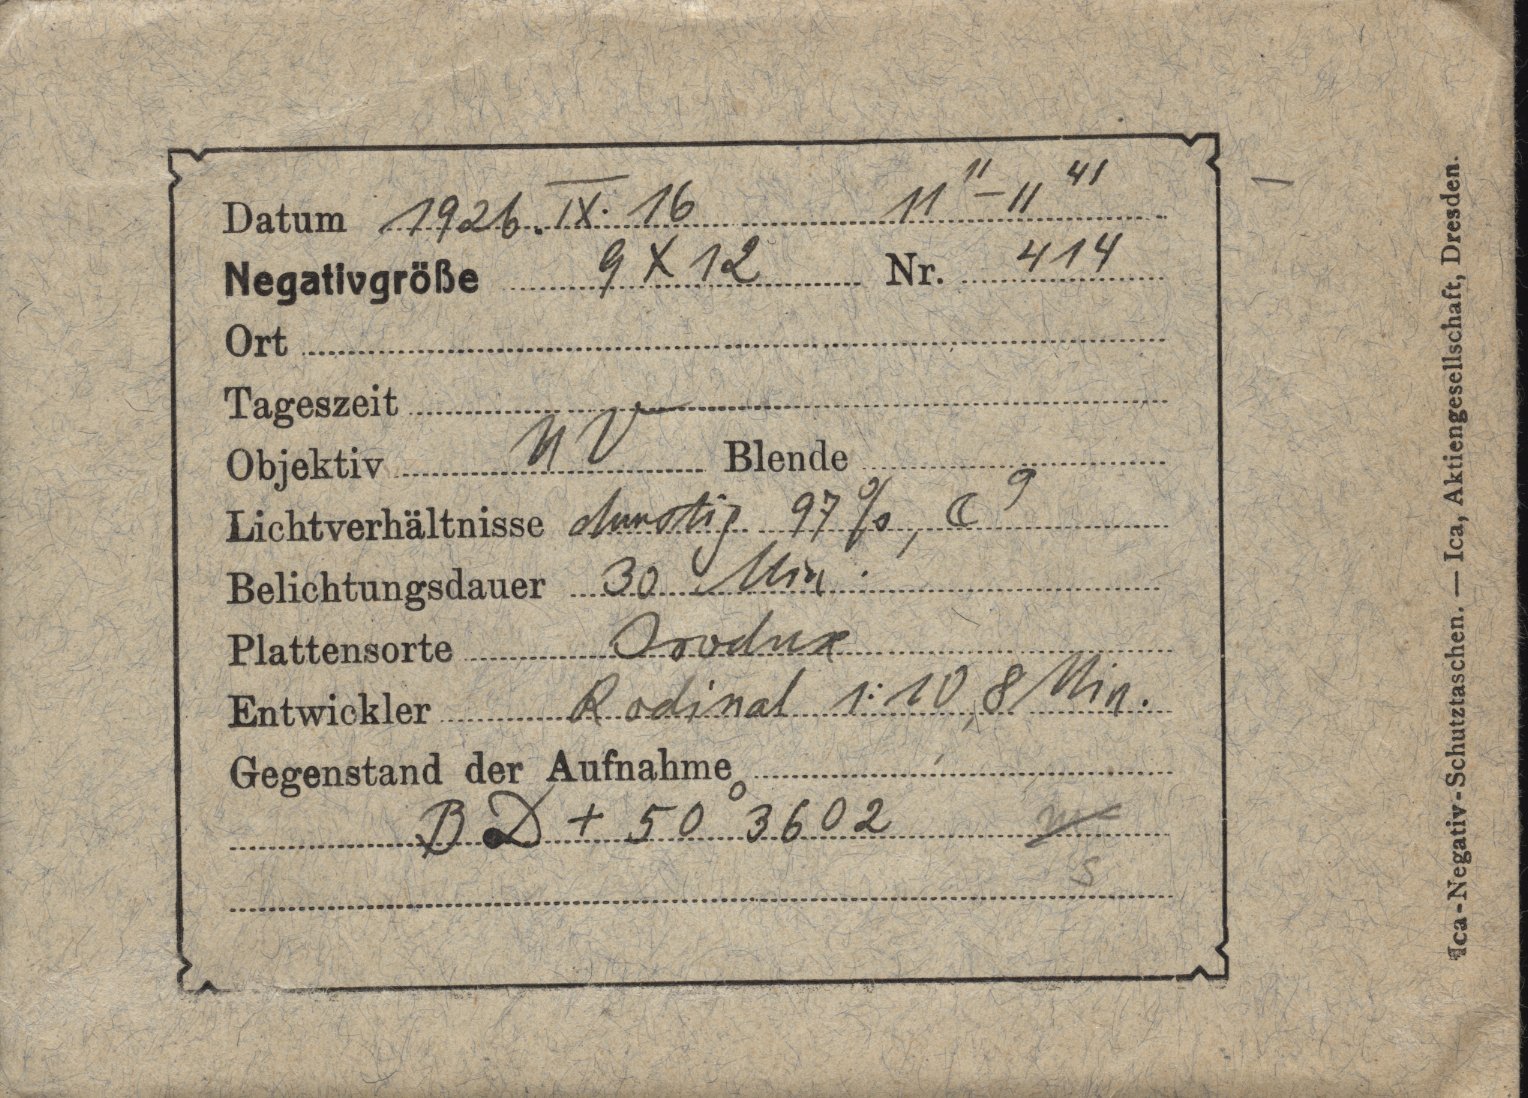 Datum 1926. IX. 16 11 11 – 11 41
Negativgröße 9 X 12 Nr. 414
Ort
Tageszeit
Objektiv UV Blende
Lichtverhältnisse dunstig 97%, ☾ 9
Belichtungsdauer 30 Min.
Plattensorte
Entwickler Rodinal 1:10, 8 Min.
Gegenstand der Aufnahme
BD + 50° 3602
s
Ica-Negativ-Schutztaschen. — Ica, Aktiengesellschaft, Dresden.